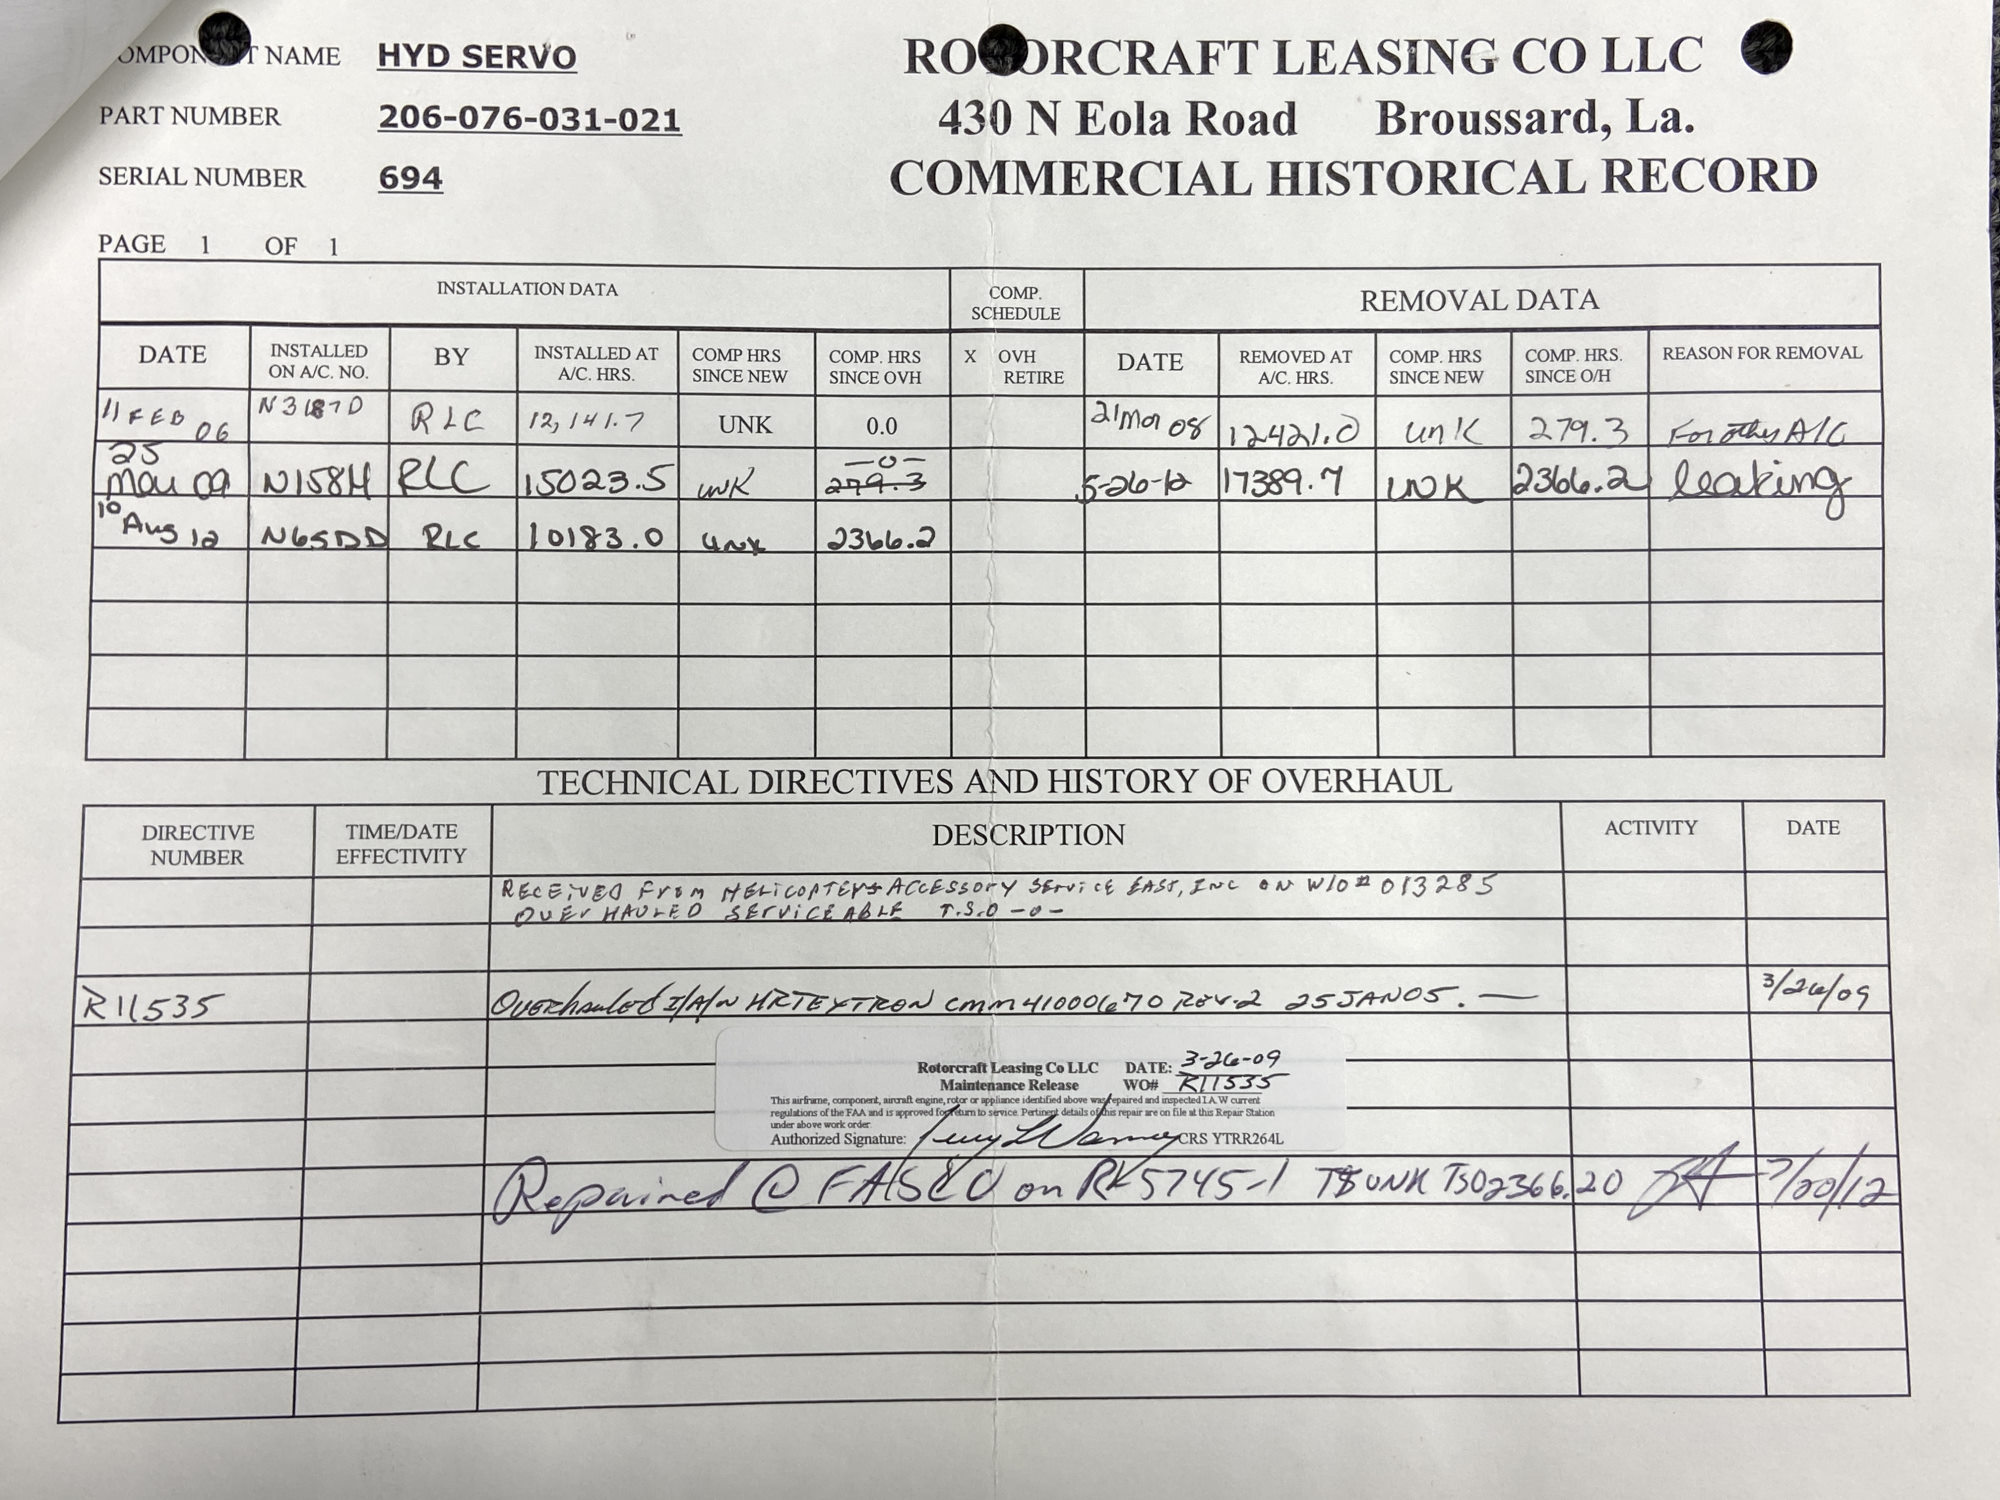 COMPONENT NAME HYD SERVO
ROTORCRAFT LEASING CO LLC
PART NUMBER 206-076-031-021
430 N Eola Road Broussard, La.
SERIAL NUMBER 694
COMMERCIAL HISTORICAL RECORD
PAGE 1 OF 1
INSTALLATION DATA
COMP. SCHEDULE
REMOVAL DATA
DATE
INSTALLED ON A/C. NO.
BY
INSTALLED AT A/C. HRS.
COMP HRS SINCE NEW
COMP. HRS SINCE OVH
X OVH RETIRE
DATE
REMOVED AT A/C. HRS.
COMP. HRS SINCE NEW
COMP. HRS. SINCE O/H
REASON FOR REMOVAL
11 FEB 06 N3187D RLC 12,141.7 UNK 0.0 21 Mar 08 12421.0 UNK 279.3 For other A/C
25 Mar 09 N158H RLC 15023.5 UNK 279.3 -0- 5-26-12 17389.7 UNK 2366.2 leaking
10 Aug 12 N65DD RLC 10183.0 UNK 2366.2
TECHNICAL DIRECTIVES AND HISTORY OF OVERHAUL
DIRECTIVE NUMBER
TIME/DATE EFFECTIVITY
DESCRIPTION
ACTIVITY
DATE
RECEIVED FROM HELICOPTER ACCESSORY SERVICE EAST, INC ON W/O# 013285
OVERHAULED SERVICEABLE T.S.O -0-
R11535 Overhauled I/A/W HRTEXTRON CMM 41000670 REV-2 25JAN05. — 3/26/09
Rotorcraft Leasing Co LLC DATE: 3-26-09
Maintenance Release WO# R11535
This airframe, component, aircraft engine, rotor or appliance identified above was repaired and inspected I.A.W current
regulations of the FAA and is approved for return to service. Pertinent details of this repair are on file at this Repair Station
under above work order
Authorized Signature: CRS YTRR264L
Repaired @ FASCO on RK5745-1 TSUNK TSO2366.20 7/20/12